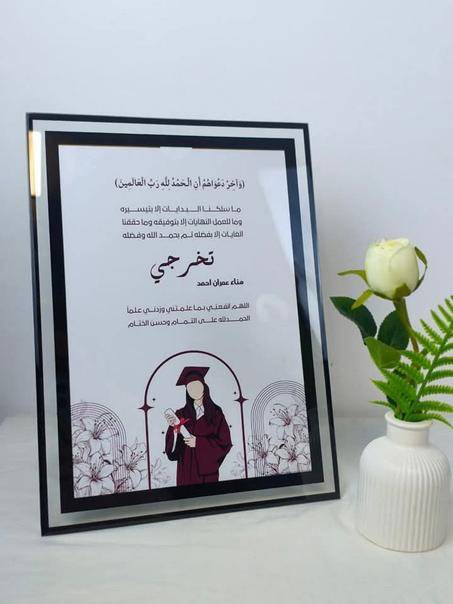 ﴿وَآخِرُ دَعْوَاهُمْ أَنِ الْحَمْدُ لِلَّهِ رَبِّ الْعَالَمِينَ﴾
ما سلكنا البدايات إلا بتيسيره
وما للعمل النهايات إلا بتوفيقه وما حققنا
الغايات إلا بفضله ثم بحمد الله وفضله
تخرجي
هناء عمران احمد
اللهم انفعني بما علمتني وزدني علماً
الحمدلله على التمام وحسن الختام